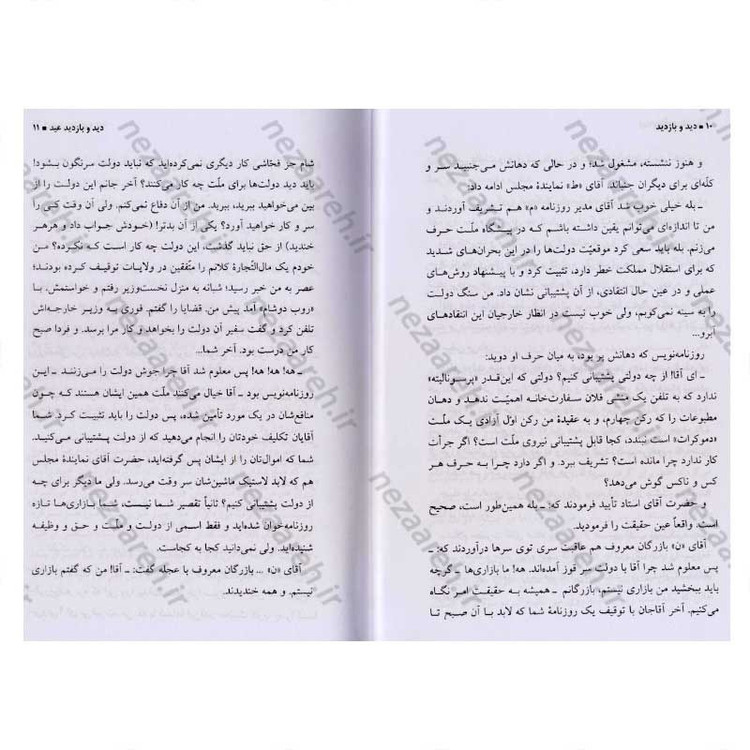 ۱۰ ■ دید و بازدید
و هنوز ننشسته، مشغول شد؛ و در حالی که دهانش می‌جنبید سر و
کله‌ای برای دیگران جنباند. آقای «ط» نمایندهٔ مجلس ادامه داد:
ـ بله خیلی خوب شد آقای مدیر روزنامه «م» هـم تـشریف آوردنـد و
من تا اندازه‌ای می‌توانم یقین داشته باشـم کـه در پیـشگاه ملّـت حـرف
می‌زنم. بله باید سعی کرد موقعیّت دولت‌ها را در این بحران‌های شـدید
که برای استقلال مملکت خطر دارد، تثبیت کرد و با پیشنهاد روش‌های
عملی و در عین حال انتقادی، از آن پشتیبانی نشان داد. من سنگ دولـت
را به سینه نمی‌کوبم، ولی خوب نیست در انظار خارجیان این انتقادهـای
آبرو...
روزنامه‌نویس که دهانش پر بود، به میان حرف او دوید:
ـ ای آقا! از چه دولتی پشتیبانی کنیم؟ دولتی که این‌قدر «پرسـونالیته»
ندارد که به تلفن یک منشی فلان سفارت‌خانه اهمیّـت نـدهـد و دهـان
مطبوعات را که رکن چهارم، و به عقیدهٔ من رکن اول آزادی یـک ملّـت
«دموکرات» است نبندد، کجا قابل پشتیبانی نیروی ملّت است؟ اگر جرأت
کار ندارد چرا مانده است؟ تشریف ببرد. و اگر دارد چـرا بـه حـرف هـر
کس و ناکس گوش می‌دهد؟
و حضرت آقای استاد تأیید فرمودند که: ـ بله همین‌طور است، صحیح
است. واقعاً عین حقیقت را فرمودید.
آقای «ن» بازرگان معروف هم عاقبت سری توی سرها درآوردند که: ـ
پس معلوم شد چرا آقا با دولت سر قوز آمده‌اند. هه! ما بازاری‌ها ـ گرچه
باید ببخشید من بازاری نیستم، بازرگانم ـ همیشه به حقیقت امـر نگـاه
می‌کنیم. آخر آقاجان با توقیف یک روزنامهٔ شما که لابد بـا آن صـبح تـا
دید و بازدید عید ■ ۱۱
شام جز فحّاشی کار دیگری نمی‌کرده‌اید که نباید دولت سرنگون بـشود!
باید دید دولت‌ها برای ملّت چه کار می‌کنند؟ آخر جانم این دولـت را از
بین می‌خواهید ببرید، ببرید. من از آن دفاع نمی‌کنم. ولی آن وقت کـی را
سر و کار خواهید آورد؟ یکی از آن بدتر! (خـودش جـواب داد و هرهـر
خندید) از حق نباید گذشت، این دولت چه کار است کـه نکـرده؟ مـن
خودم یک مال‌التّجارهٔ کلانم را متّفقین در ولایـات توقیـف کـرده بودنـد؛
عصر به من خبر رسید؛ شبانه به منزل نخست‌وزیر رفتم و خواستمش. با
«روب دوشام» آمد پیش من. قضایا را گفتم. فوری بـه وزیـر خارجـه‌اش
تلفن کرد و گفت سفیر آن دولت را بخواهد و کار مرا برسد. و فردا صبح
کار من درست بود. آخر شما...
ـ هه! هه! هه! پس معلوم شد آقا چرا جوش دولت را مـی‌زننـد ـ ایـن
روزنامه‌نویس بود ـ آقا خیال می‌کنند ملّت همین ایشان هستند کـه چـون
منافع‌شان در یک مورد تأمین شده، پس دولت را باید تثبیـت کـرد. شـما
آقایان تکلیف خودتان را انجام می‌دهید که از دولت پـشتیبانی مـی‌کنیـد.
شما که اموال‌تان را از ایشان پس گرفته‌اید، حضرت آقای نماینـدهٔ مجلـس
هم که لابد لاستیک ماشین‌شان سر وقت می‌رسد. ولی ما دیگر برای چه
از دولت پشتیبانی کنیم؟ ثانیاً تقصیر شما نیست، شما بازاری‌هـا تـازه
روزنامه‌خوان شده‌اید و فقط اسمی از دولـت و ملّـت و حـق و وظیفـه
شنیده‌اید. ولی نمی‌دانید کجا به کجاست.
آقای «ن» ... بازرگان معروف با عجله گفت: ـ آقا! من که گفتم بازاری
نیستم. و همه خندیدند.
nezaareh.ir